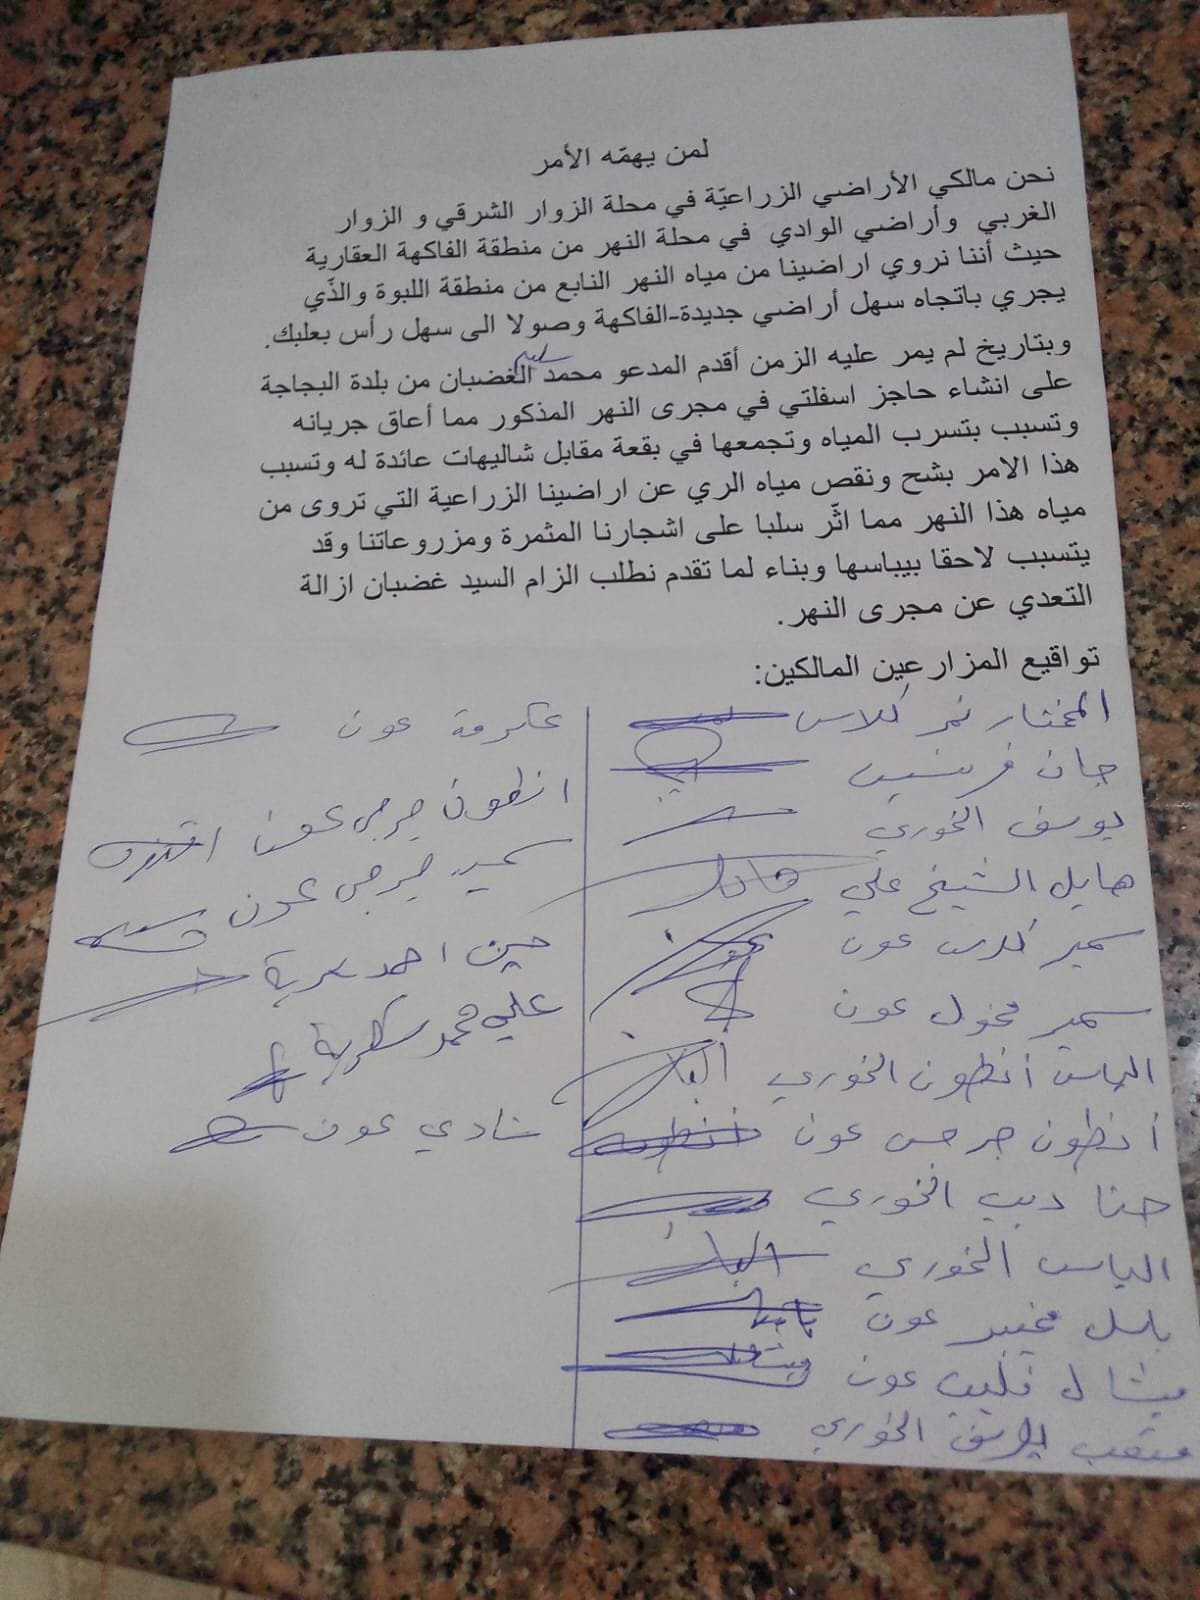 لمن يهمّه الأمر
نحن مالكي الأراضي الزراعيّة في محلة الزوار الشرقي و الزوار
الغربي وأراضي الوادي في محلة النهر من منطقة الفاكهة العقارية
حيث أننا نروي اراضينا من مياه النهر النابع من منطقة اللبوة والذّي
يجري باتجاه سهل أراضي جديدة-الفاكهة وصولا الى سهل رأس بعلبك.
وبتاريخ لم يمر عليه الزمن أقدم المدعو محمد سليم الغضبان من بلدة البجاجة
على انشاء حاجز اسفلتي في مجرى النهر المذكور مما أعاق جريانه
وتسبب بتسرب المياه وتجمعها في بقعة مقابل شاليهات عائدة له وتسبب
هذا الامر بشح ونقص مياه الري عن اراضينا الزراعية التي تروى من
مياه هذا النهر مما اثّر سلبا على اشجارنا المثمرة ومزروعاتنا وقد
يتسبب لاحقا بيباسها وبناء لما تقدم نطلب الزام السيد غضبان ازالة
التعدي عن مجرى النهر.
تواقيع المزارعين المالكين:
المختار نمر كلاس
جان فرنسيس
يوسف الخوري
هايل الشيخ علي
سمير كلاس عون
سمير مخول عون
الياس أنطون الخوري
أنطون جرجس عون
حنا ديب الخوري
الياس الخوري
باسل مخيبر عون
ميشال فليب عون
متعب يوسف الخوري
عكرمة عون
انطون جرجي عون
سمير جرجي عون
حسين احمد سكرية
علي محمد سكرية
شادي عون